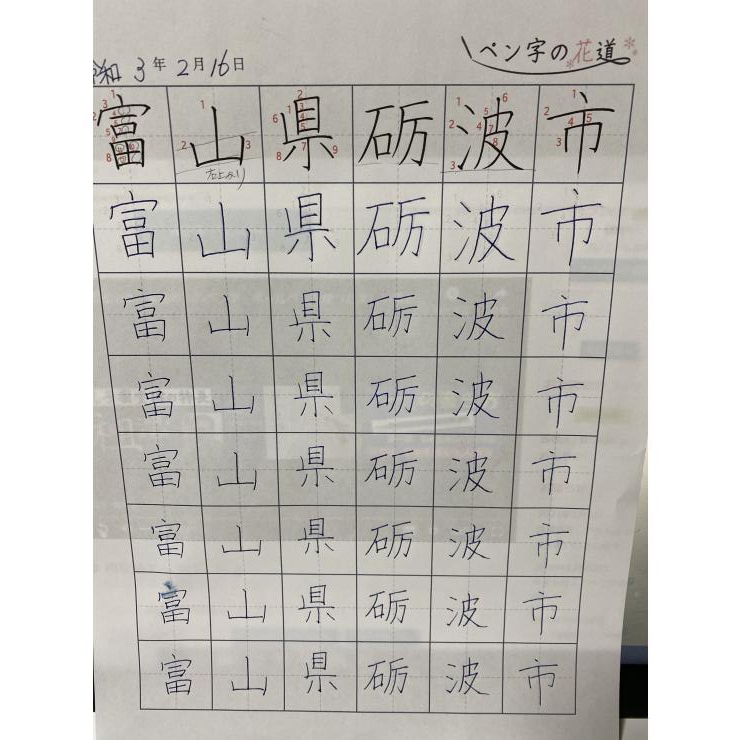 令和3年2月16日
ペン字の花道
富山県砺波市
右上がり
富山県砺波市
富山県砺波市
富山県砺波市
富山県砺波市
富山県砺波市
富山県砺波市
富山県砺波市